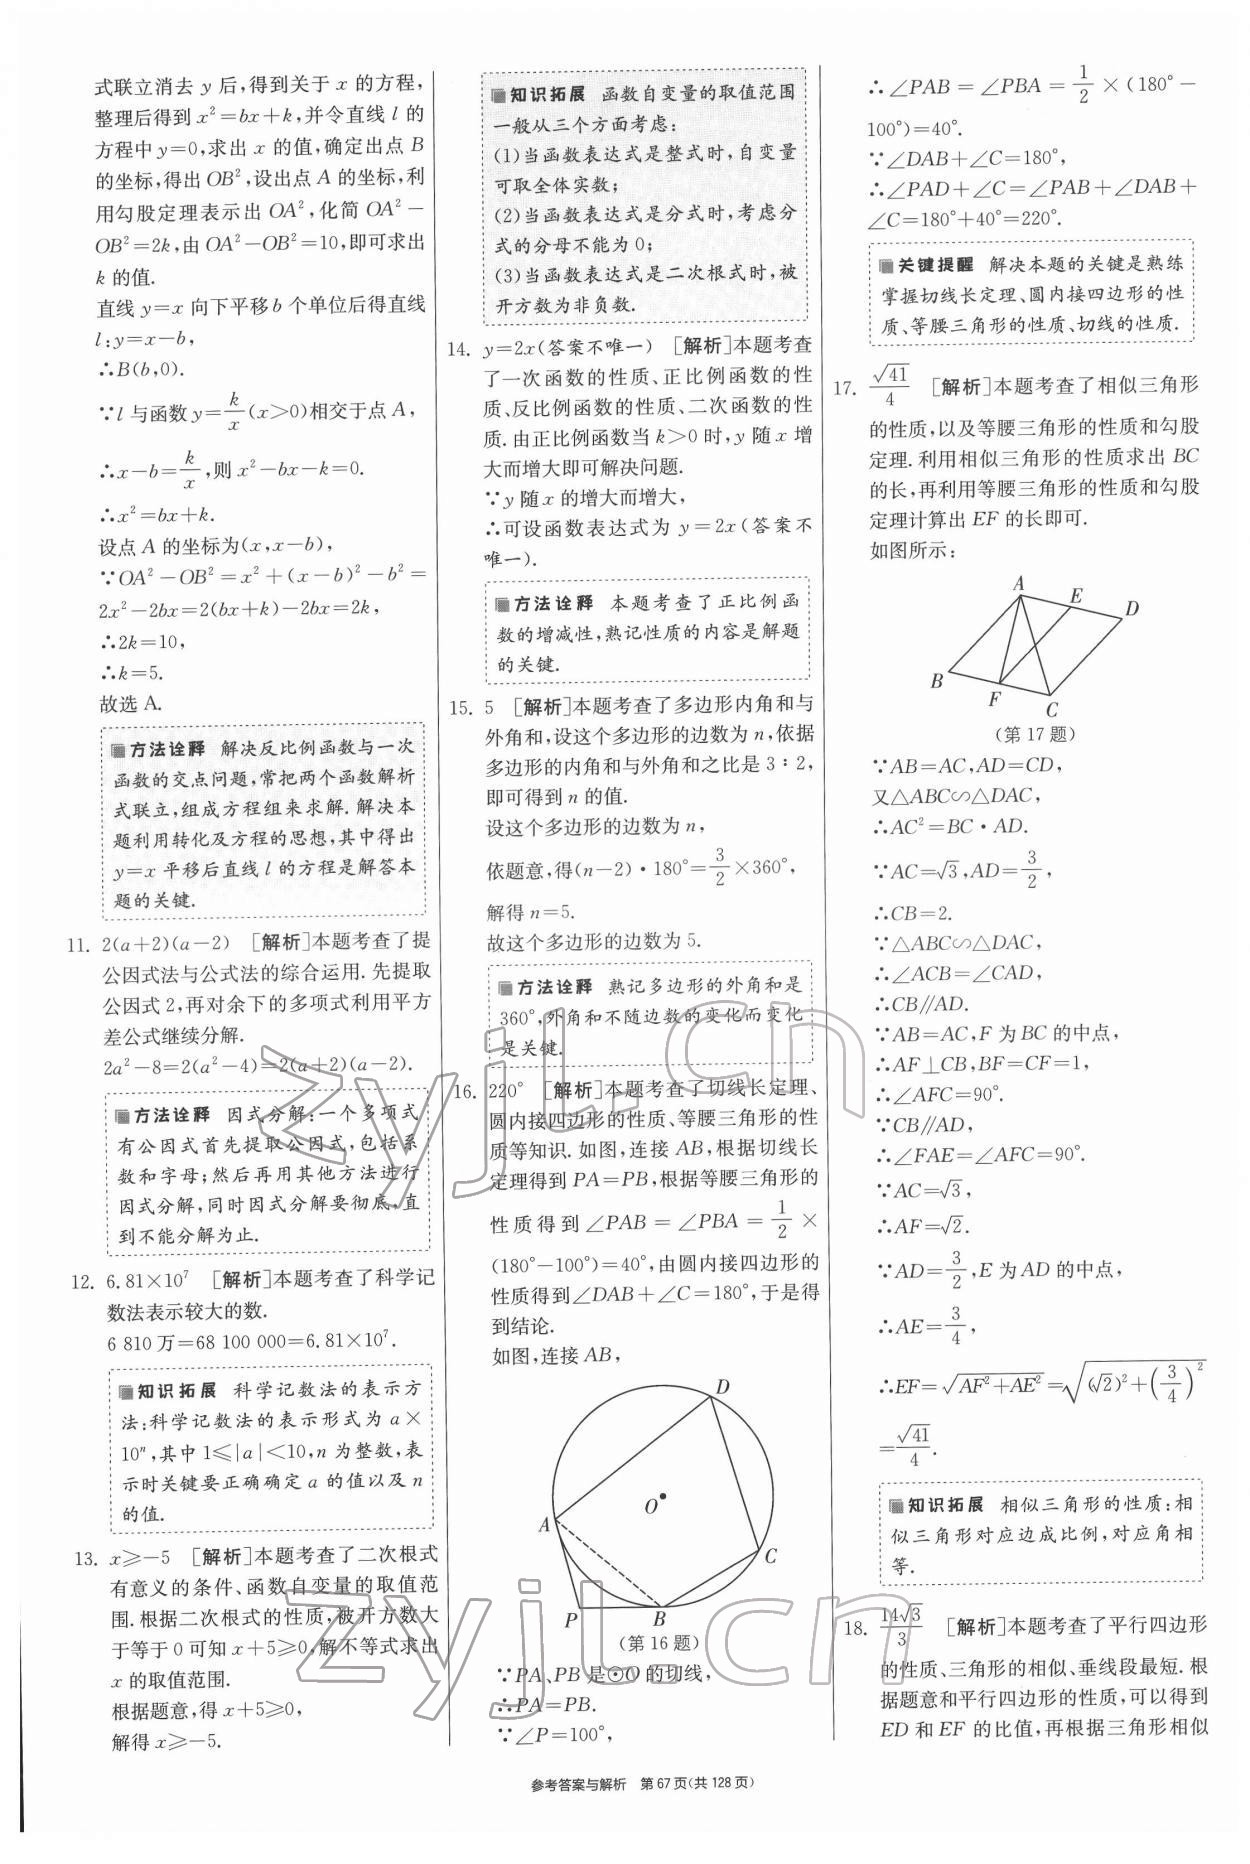 式联立消去 y 后,得到关于 x 的方程,
整理后得到 x²=bx+k,并令直线 l 的
方程中 y=0,求出 x 的值,确定出点 B
的坐标,得出 OB²,设出点 A 的坐标,利
用勾股定理表示出 OA²,化简 OA²-
OB²=2k,由 OA²-OB²=10,即可求出
k 的值.
直线 y=x 向下平移 b 个单位后得直线
l:y=x-b,
∴B(b,0).
∵l 与函数 y=k/x(x>0)相交于点 A,
∴x-b=k/x,则 x²-bx-k=0.
∴x²=bx+k.
设点 A 的坐标为(x,x-b),
∵OA²-OB²=x²+(x-b)²-b²=
2x²-2bx=2(bx+k)-2bx=2k,
∴2k=10,
∴k=5.
故选 A.
方法诠释 解决反比例函数与一次
函数的交点问题,常把两个函数解析
式联立,组成方程组来求解.解决本
题利用转化及方程的思想,其中得出
y=x 平移后直线 l 的方程是解答本
题的关键.
11. 2(a+2)(a-2) [解析]本题考查了提
公因式法与公式法的综合运用.先提取
公因式 2,再对余下的多项式利用平方
差公式继续分解.
2a²-8=2(a²-4)=2(a+2)(a-2).
方法诠释 因式分解:一个多项式
有公因式首先提取公因式,包括系
数和字母;然后再用其他方法进行
因式分解,同时因式分解要彻底,直
到不能分解为止.
12. 6.81×10⁷ [解析]本题考查了科学记
数法表示较大的数.
6 810 万=68 100 000=6.81×10⁷.
知识拓展 科学记数法的表示方
法:科学记数法的表示形式为 a×
10ⁿ,其中 1≤|a|<10,n 为整数,表
示时关键要正确确定 a 的值以及 n
的值.
13. x≥-5 [解析]本题考查了二次根式
有意义的条件、函数自变量的取值范
围.根据二次根式的性质,被开方数大
于等于 0 可知 x+5≥0,解不等式求出
x 的取值范围.
根据题意,得 x+5≥0,
解得 x≥-5.
知识拓展 函数自变量的取值范围
一般从三个方面考虑:
(1)当函数表达式是整式时,自变量
可取全体实数;
(2)当函数表达式是分式时,考虑分
式的分母不能为 0;
(3)当函数表达式是二次根式时,被
开方数为非负数.
14. y=2x(答案不唯一) [解析]本题考查
了一次函数的性质、正比例函数的性
质、反比例函数的性质、二次函数的性
质.由正比例函数当 k>0 时,y 随 x 增
大而增大即可解决问题.
∵y 随 x 的增大而增大,
∴可设函数表达式为 y=2x(答案不
唯一).
方法诠释 本题考查了正比例函
数的增减性,熟记性质的内容是解题
的关键.
15. 5 [解析]本题考查了多边形内角和与
外角和,设这个多边形的边数为 n,依据
多边形的内角和与外角和之比是 3∶2,
即可得到 n 的值.
设这个多边形的边数为 n,
依题意,得(n-2)·180°=3/2×360°,
解得 n=5.
故这个多边形的边数为 5.
方法诠释 熟记多边形的外角和是
360°,外角和不随边数的变化而变化
是关键.
16. 220° [解析]本题考查了切线长定理、
圆内接四边形的性质、等腰三角形的性
质等知识.如图,连接 AB,根据切线长
定理得到 PA=PB,根据等腰三角形的
性质得到∠PAB=∠PBA=1/2×
(180°-100°)=40°,由圆内接四边形的
性质得到∠DAB+∠C=180°,于是得
到结论.
如图,连接 AB,
D
O
A
C
P
B
(第 16 题)
∵PA、PB 是⊙O 的切线,
∴PA=PB.
∵∠P=100°,
∴∠PAB=∠PBA=1/2×(180°-
100°)=40°.
∵∠DAB+∠C=180°,
∴∠PAD+∠C=∠PAB+∠DAB+
∠C=180°+40°=220°.
关键提醒 解决本题的关键是熟练
掌握切线长定理、圆内接四边形的性
质、等腰三角形的性质、切线的性质.
17. √41/4 [解析]本题考查了相似三角形
的性质,以及等腰三角形的性质和勾股
定理.利用相似三角形的性质求出 BC
的长,再利用等腰三角形的性质和勾股
定理计算出 EF 的长即可.
如图所示:
A
E
D
B
F
C
(第 17 题)
∵AB=AC,AD=CD,
又△ABC∽△DAC,
∴AC²=BC·AD.
∵AC=√3,AD=3/2,
∴CB=2.
∵△ABC∽△DAC,
∴∠ACB=∠CAD,
∴CB∥AD.
∵AB=AC,F 为 BC 的中点,
∴AF⊥CB,BF=CF=1,
∴∠AFC=90°.
∵CB∥AD,
∴∠FAE=∠AFC=90°.
∵AC=√3,
∴AF=√2.
∵AD=3/2,E 为 AD 的中点,
∴AE=3/4,
∴EF=√(AF²+AE²)=√((√2)²+(3/4)²)
=√41/4.
知识拓展 相似三角形的性质:相
似三角形对应边成比例,对应角相
等.
18. 14√3/3 [解析]本题考查了平行四边形
的性质、三角形的相似、垂线段最短.根
据题意和平行四边形的性质,可以得到
ED 和 EF 的比值,再根据三角形相似
参考答案与解析 第 67 页(共 128 页)
zyjl.cn
zyjl.cn